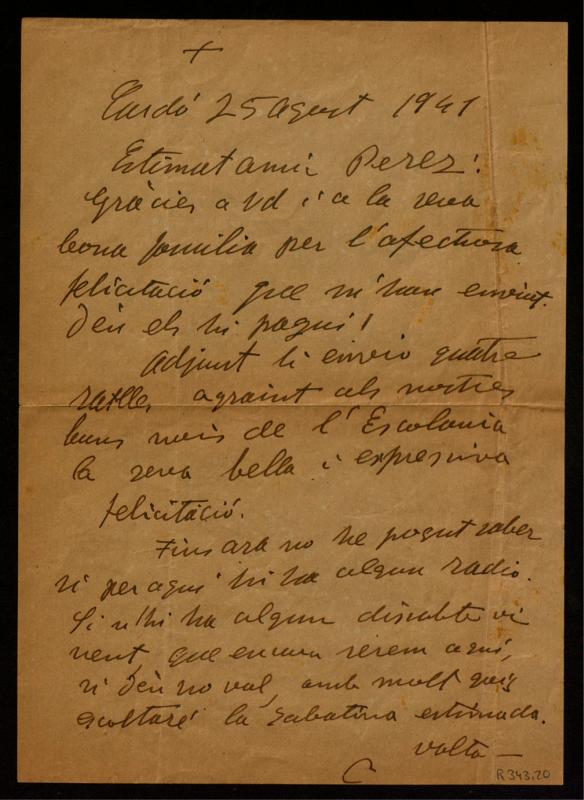 +
Cardó 25 agost 1941
Estimat amic Perez:
Gràcies a Vd i a la seva
bona familia per l'afectuosa
felicitació que m'han enviat.
Deu els hi pagui!
Adjunt li envio quatre
ratlles agraint als nostres
bons nois de l'Escolania
la seva bella i expressiva
felicitació.
Fins ara no he pogut saber
si per aquí hi ha algun radio.
Si n'hi ha algun dissabte vi
nent, que encara serem aquí,
si Deu no val, amb molt goig
escoltaré la Sabatina estimada.
volta —
R 343,20